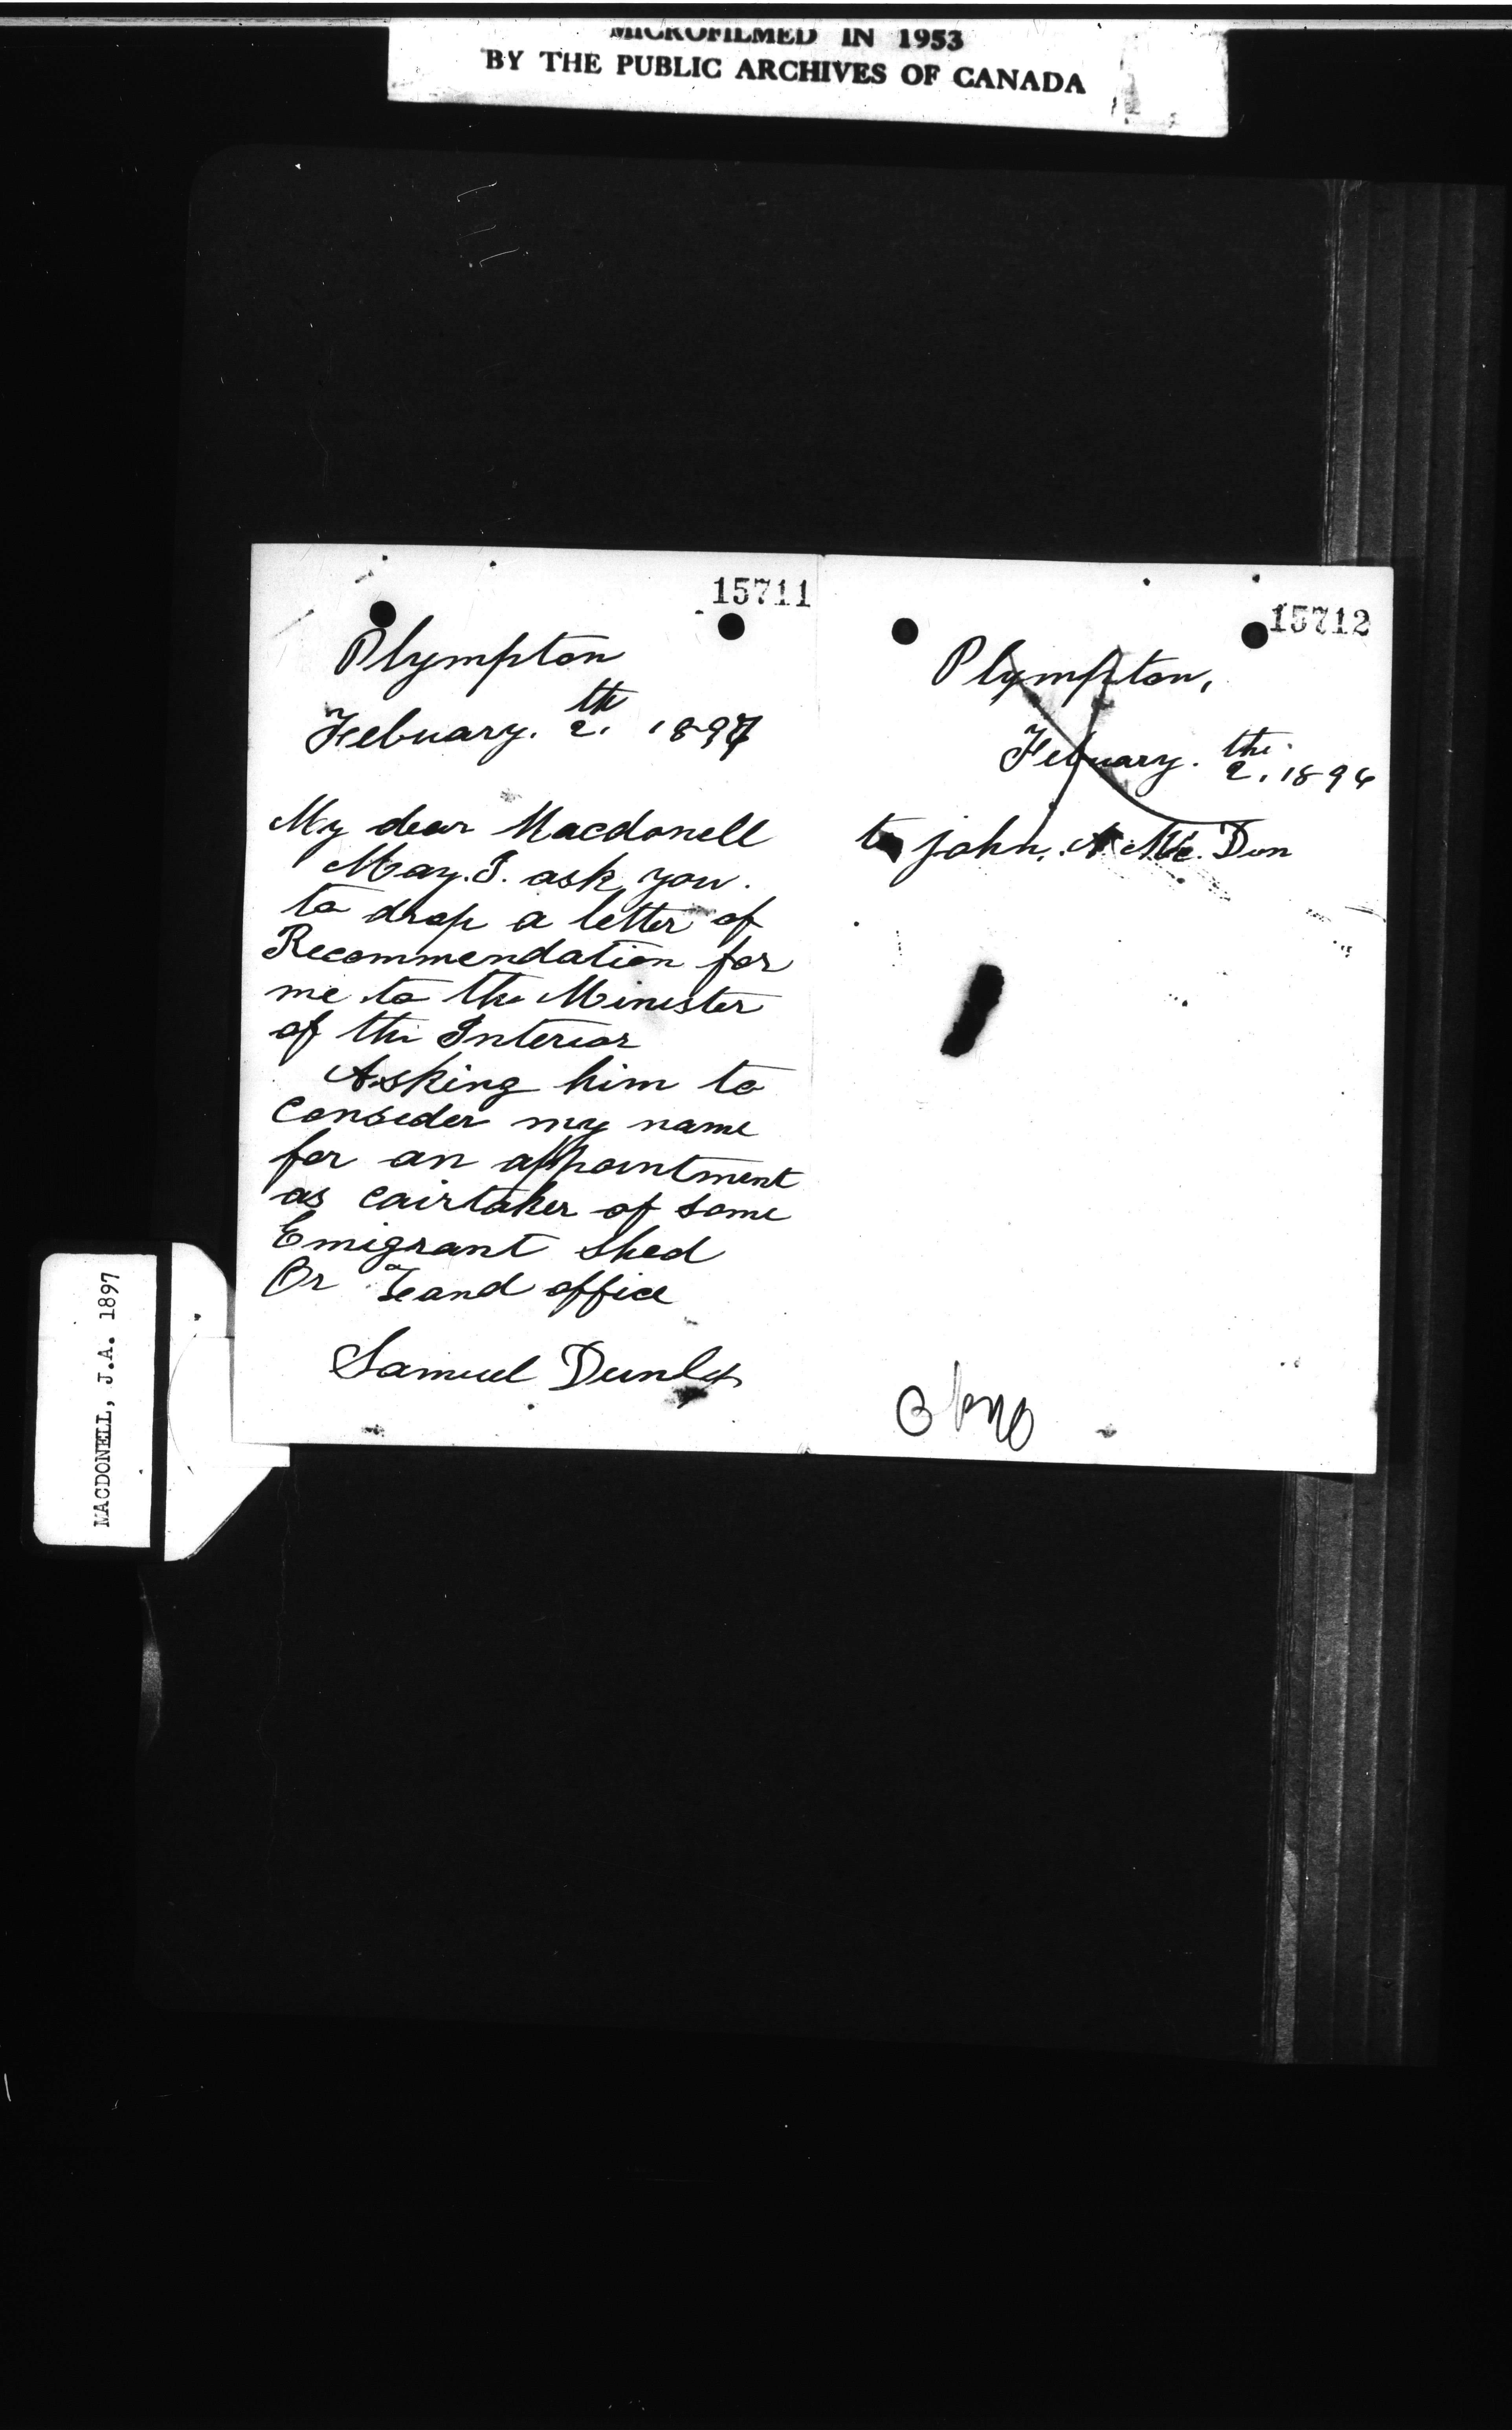 MICROFILMED IN 1953
BY THE PUBLIC ARCHIVES OF CANADA
15711
Plympton
Febuary. 2th. 1897
My dear Macdonell
May. I. ask you.
to drop a letter of
Recommendation for
me to the Minister
of the Interior
Asking him to
Consider my name
for an appointment
as Cairtaker of some
Emigrant shed
Or Leand office
Samuel Dunlop
15712
Plympton,
Febuary. the. 2. 1896
to john. A Mc. Don
MACDONELL, J.A. 1897